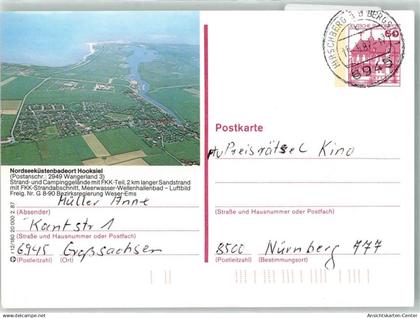 HIRSCHBERG A D BERGSTR
6945
60
Nordseeküstenbadeort Hooksiel
(Postanschr., 2949 Wangerland 3)
Strand- und Campinggelände mit FKK-Teil, 2 km langer Sandstrand
mit FKK-Strandabschnitt, Meerwasser-Wellenhallenbad – Luftbild
Freig. Nr. G 8-90 Bezirksregierung Weser-Ems
Müller Anne
(Absender)
Kantstr 1
(Straße und Hausnummer oder Postfach)
6945 Großsachsen
(Postleitzahl) (Ort)
Postkarte
Preisrätsel Kino
(Straße und Hausnummer oder Postfach)
8500 Nürnberg 777
(Postleitzahl) (Bestimmungsort)
Ansichtskarten-Center